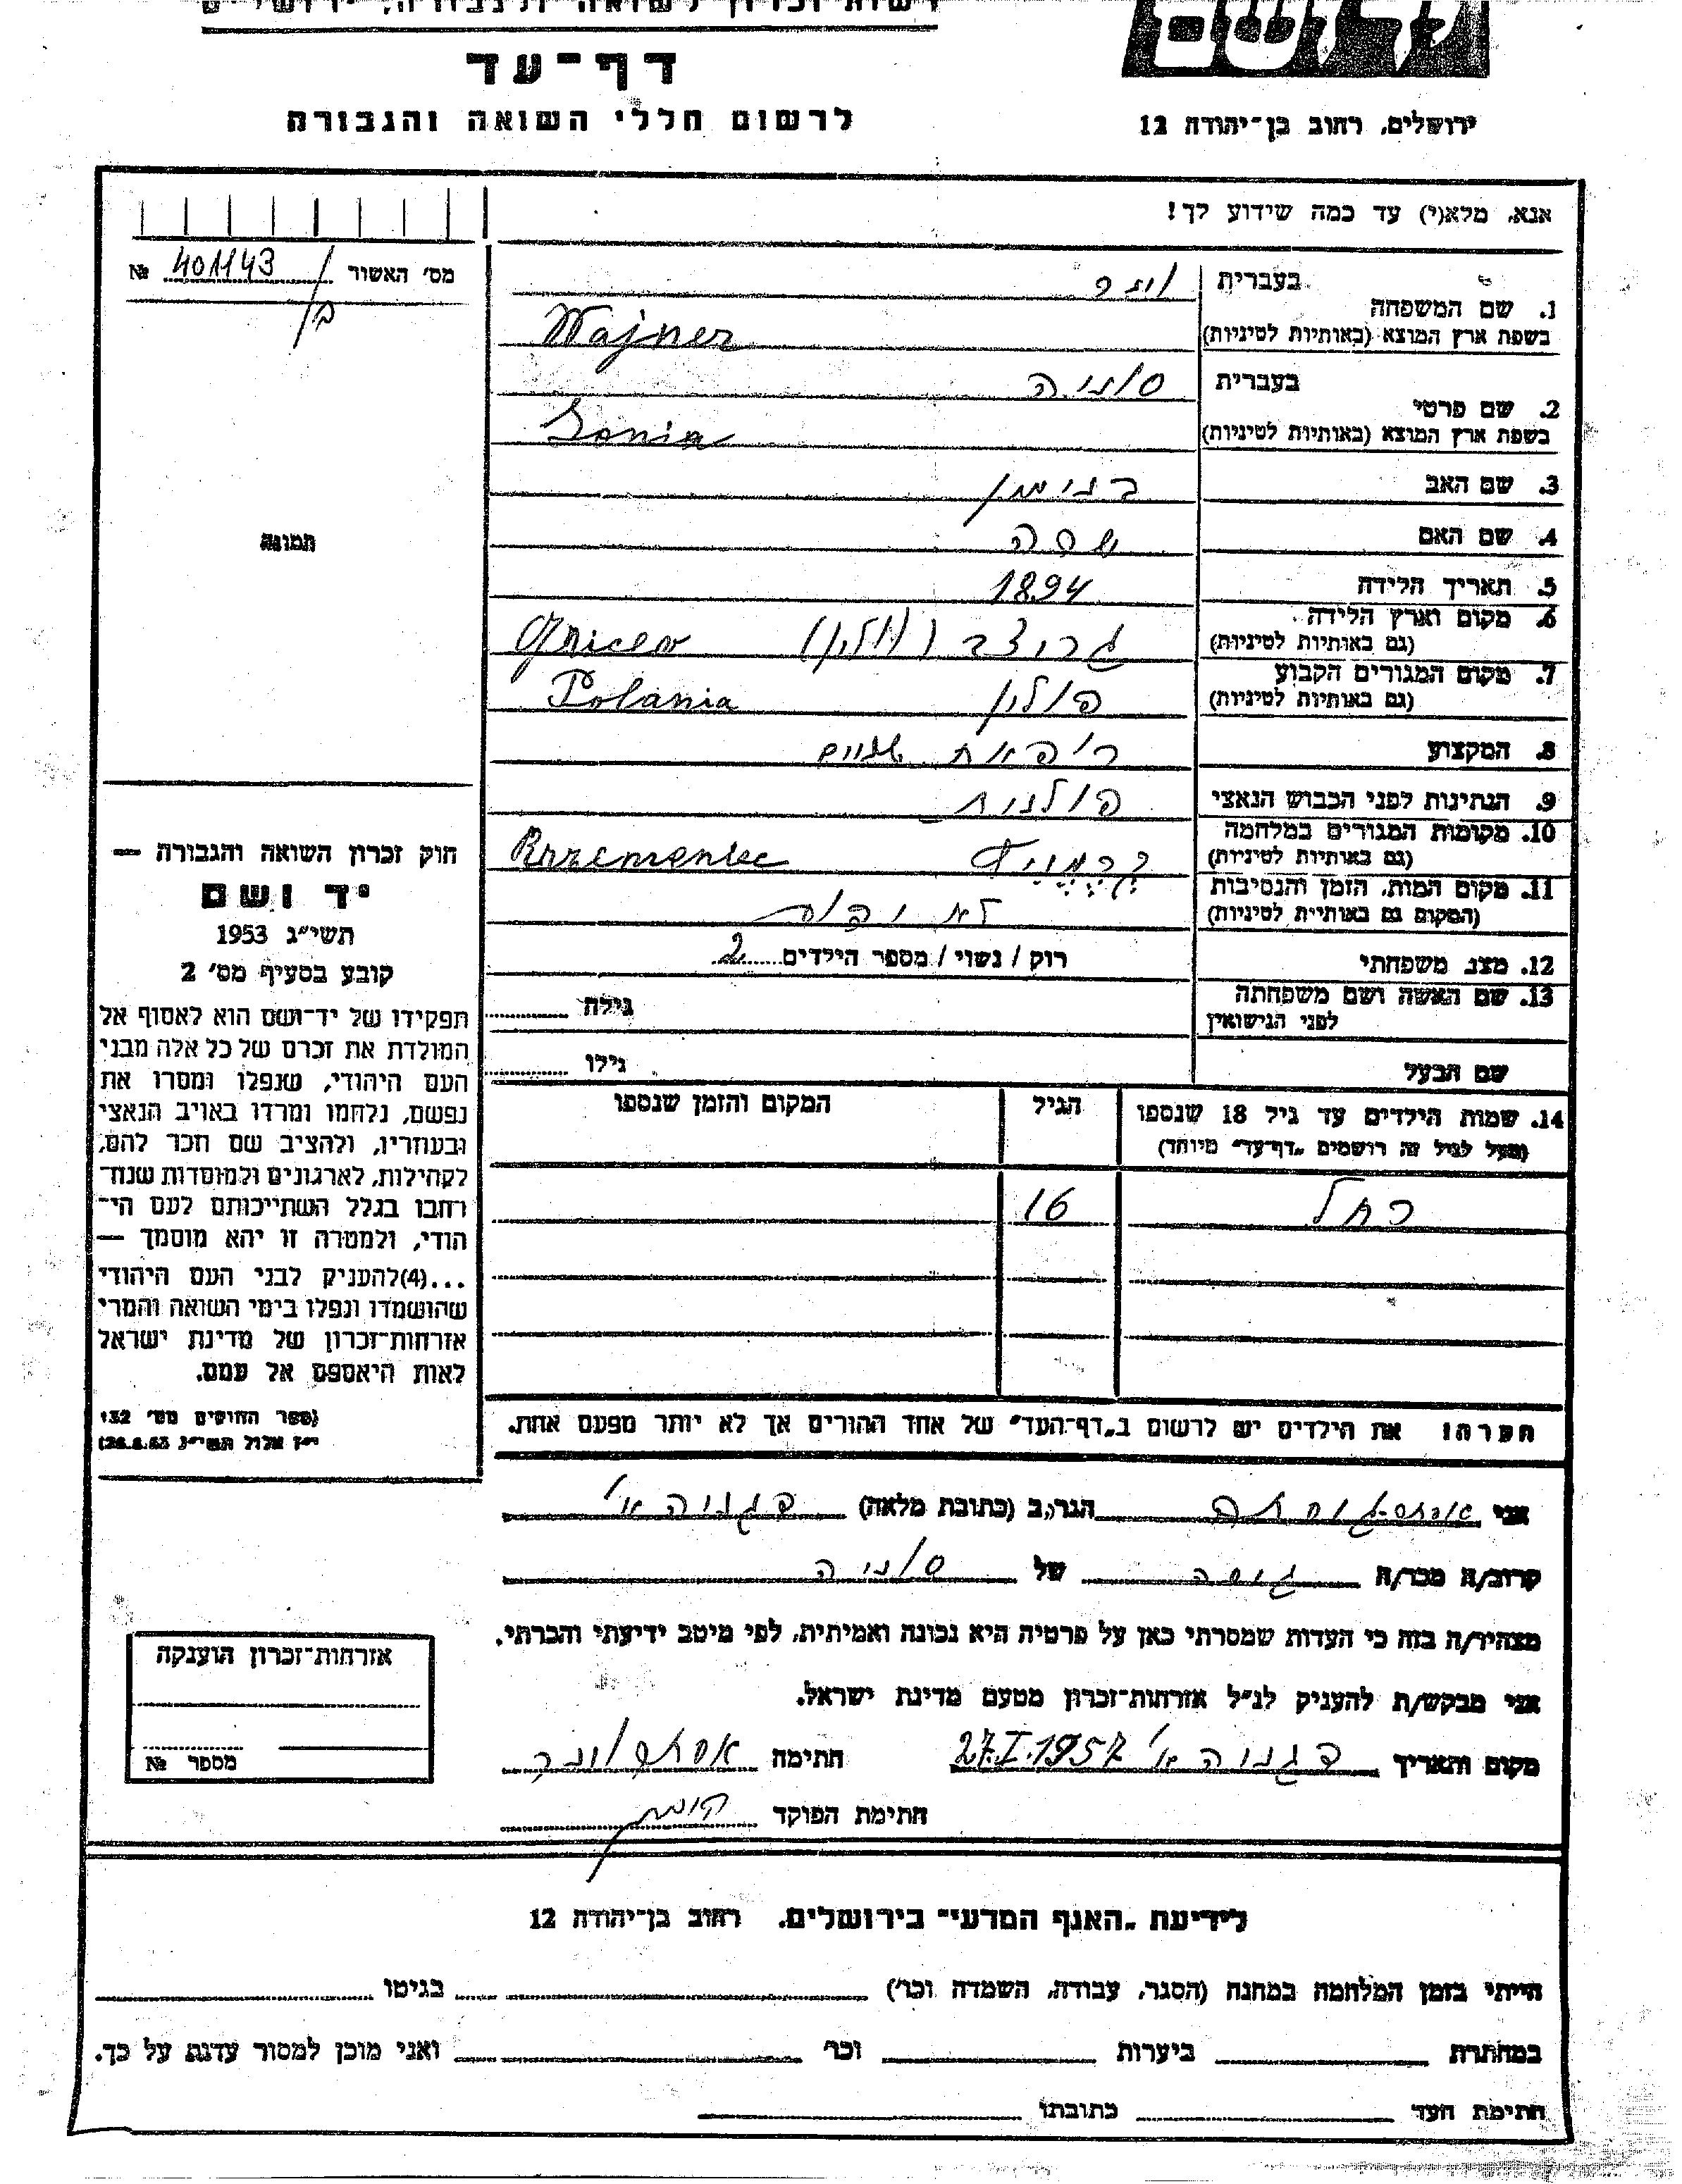 דף־עד
לרשום חללי השואה והגבורה
ירושלים, רחוב בן־יהודה 12
אנא, מלא(י) עד כמה שידוע לך!
מס׳ האשור 401143 №
ב/
1. שם המשפחה בעברית וינר
בשפת ארץ המוצא (באותיות לטיניות) Wajner
2. שם פרטי בעברית סוניה
בשפת ארץ המוצא (באותיות לטיניות) Sonia
3. שם האב בנימין
4. שם האם שרה
5. תאריך הלידה 1894
6. מקום וארץ הלידה
(גם באותיות לטיניות)
7. מקום המגורים הקבוע פולין Polania
(גם באותיות לטיניות)
8. המקצוע רופאת שניים
9. הנתינות לפני הכבוש הנאצי פולנית
10. מקומות המגורים במלחמה
(גם באותיות לטיניות)
11. מקום המות, הזמן והנסיבות לא ידוע
(המקום גם באותיות לטיניות)
12. מצב משפחתי רוק / נשוי / מספר הילדים 2
13. שם האשה ושם משפחתה גילה
לפני הנישואין
שם הבעל גילו
14. שמות הילדים עד גיל 18 שנספו הגיל המקום והזמן שנספו
(מעל לגיל זה רושמים „דף־עד״ מיוחד)
רחל 16
הערה! את הילדים יש לרשום ב„דף־העד״ של אחד ההורים אך לא יותר מפעם אחת.
תמונה
חוק זכרון השואה והגבורה —
יד ושם
תשי״ג 1953
קובע בסעיף מס׳ 2
תפקידו של יד־ושם הוא לאסוף אל
המולדת את זכרם של כל אלה מבני
העם היהודי, שנפלו ומסרו את
נפשם, נלחמו ומרדו באויב הנאצי
ובעוזריו, ולהציב שם וזכר להם,
לקהילות, לארגונים ולמוסדות שנח־
רבו בגלל השתייכותם לעם הי־
הודי, ולמטרה זו יהא מוסמך —
...(4)להעניק לבני העם היהודי
שהושמדו ונפלו בימי השואה והמרי
אזרחות־זכרון של מדינת ישראל
לאות היאספם אל עמם.
(ספר החוקים מס׳ 132
י״ז אלול תשי״ג 28.8.53)
אני הגר/ב (כתובת מלאה) דגניה א׳
קרוב/ה מכר/ה גיסה של סוניה
מצהיר/ה בזה כי העדות שמסרתי כאן על פרטיה היא נכונה ואמיתית, לפי מיטב ידיעתי והכרתי.
אני מבקש/ת להעניק לנ״ל אזרחות־זכרון מטעם מדינת ישראל.
מקום ותאריך דגניה א׳ 27.I.1957 חתימה אסתר וינר
חתימת הפוקד
אזרחות־זכרון הוענקה
מספר №
לידיעת „האגף המדעי״ בירושלים, רחוב בן־יהודה 12
הייתי בזמן המלחמה במחנה (הסגר, עבודה, השמדה וכו׳) בגיטו
במחתרת ביערות וכו׳ ואני מוכן למסור עדות על כך.
חתימת העד כתובתו